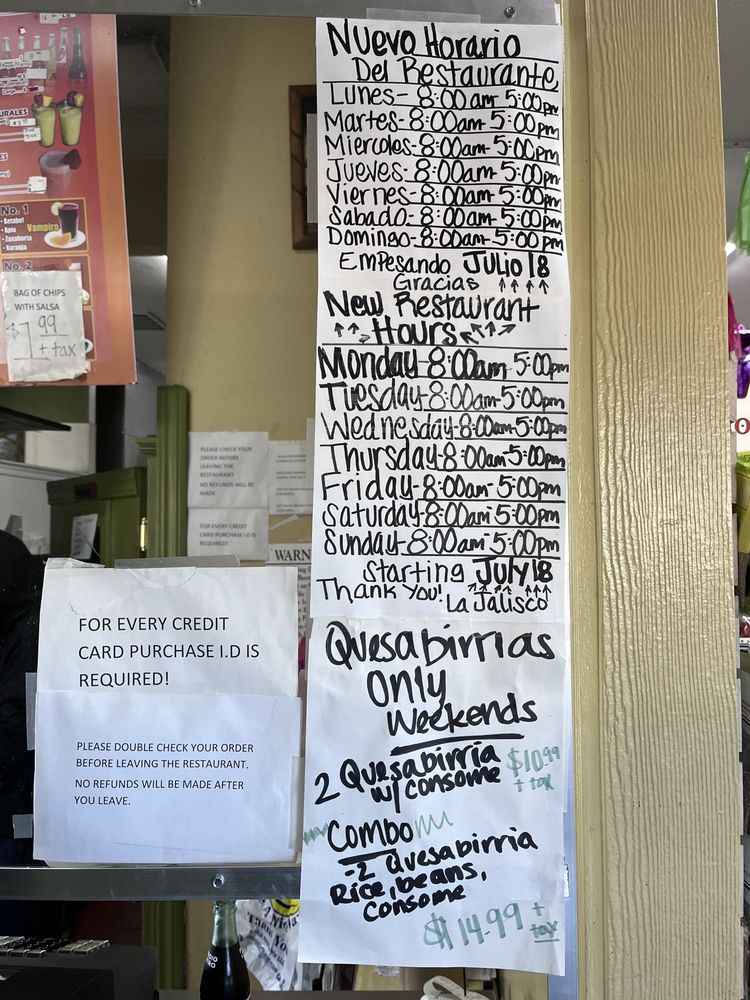 NUEVO HORARIO
Del Restaurante
Lunes- 8:00am-5:00pm
Martes-8:00am-5:00pm
Miercoles-8:00am-5:00pm
Jueves-8:00am-5:00pm
Viernes-8:00am-5:00pm
Sabado-8:00am-5:00pm
Domingo-8:00am-5:00pm
Empesando JULIO 18
Gracias ↑↑↑↑
New Restaurant
Hours
Monday-8:00am-5:00pm
Tuesday-8:00am-5:00pm
Wednesday-8:00am-5:00pm
Thursday-8:00am-5:00pm
Friday-8:00am-5:00pm
Saturday-8:00am-5:00pm
Sunday-8:00am-5:00pm
Starting July 18
Thank you! La Jalisco
Quesabirrias
Only
Weekends
2 Quesabirria $10.99
w/ consome + tax
Combo
-2 Quesabirria
Rice, beans,
Consome
$14.99 + tax
FOR EVERY CREDIT
CARD PURCHASE I.D IS
REQUIRED!
PLEASE DOUBLE CHECK YOUR ORDER
BEFORE LEAVING THE RESTAURANT.
NO REFUNDS WILL BE MADE AFTER
YOU LEAVE.
PLEASE CHECK YOUR
ORDER BEFORE
LEAVING THE
RESTAURANT
NO REFUNDS WILL BE
MADE
FOR EVERY CREDIT
CARD PURCHASE I.D IS
REQUIRED!
WARN
No. 1
• Betabel
• Apio
• Zanahoria
• Naranja
Vampiro
No. 2
BAG OF CHIPS
WITH SALSA
$7.99
+ tax